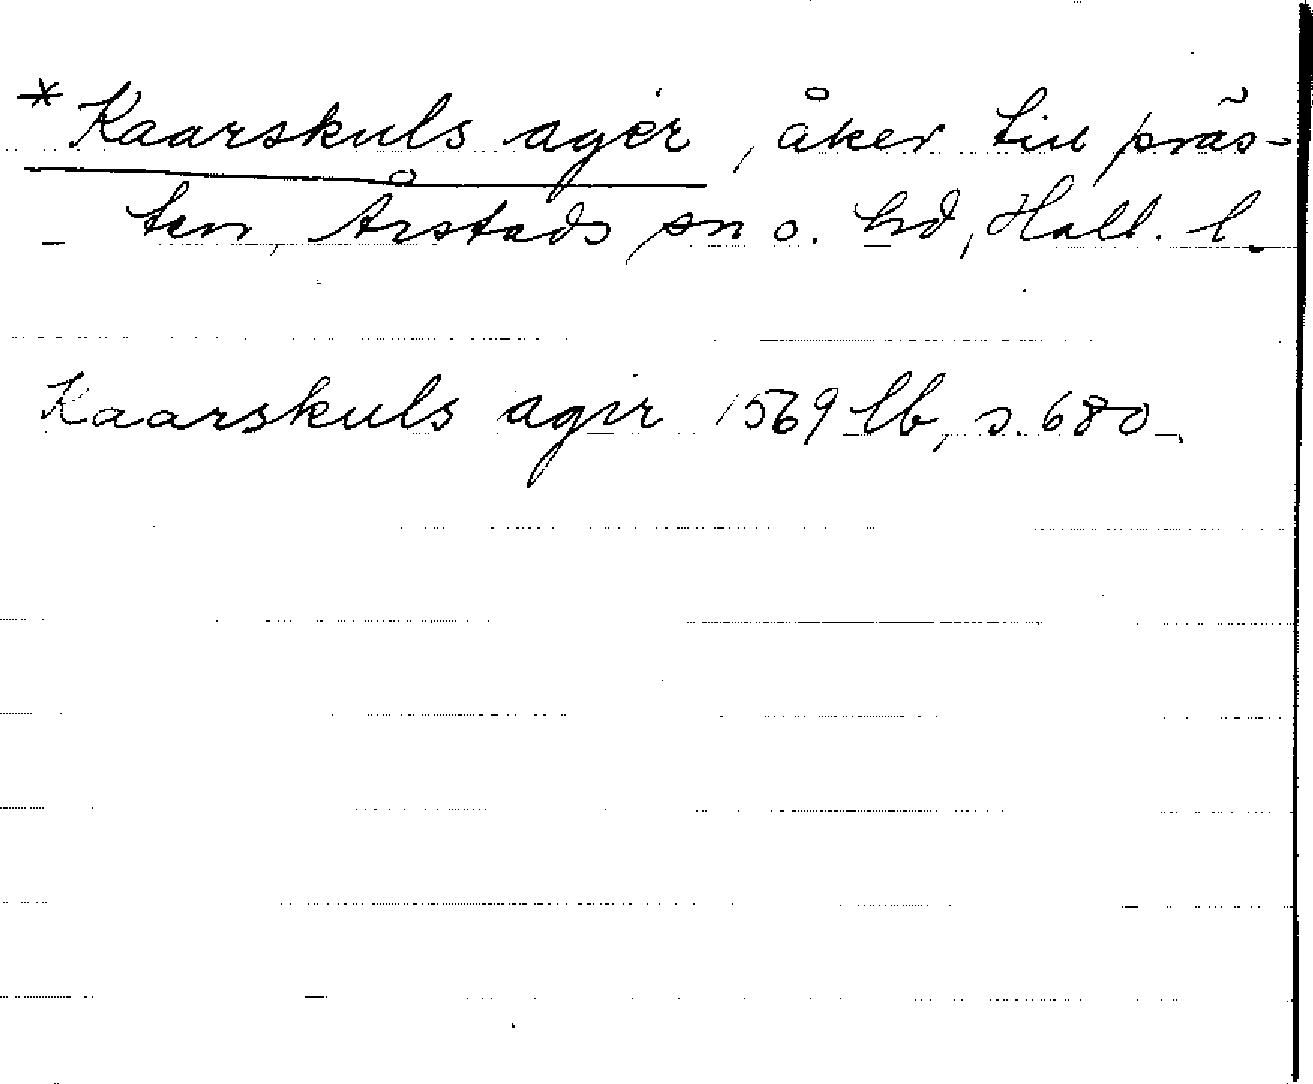 *Kaarskuls agér, åker till präs-
ten, Årstads sn o. hd, Hall. l.
Kaarskuls agir 1569 lb, s. 680